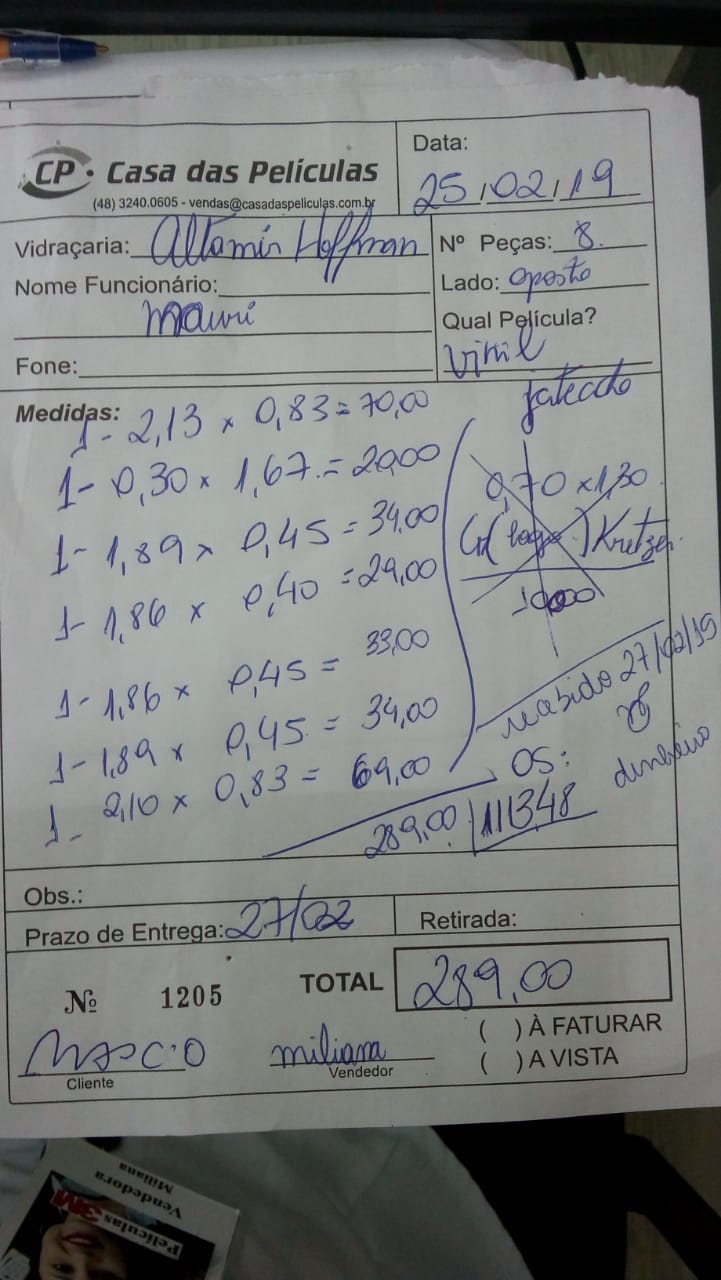 CP • Casa das Películas
(48) 3240.0605 - vendas@casadaspeliculas.com.br
Data:
25/02/19
Vidraçaria: Altamir Hoffman
Nome Funcionário:
Mauri
Fone:
Nº Peças: 8.
Lado: oposto
Qual Película?
Vinil
jateado
Medidas:
1- 2,13 x 0,83 = 70,00
1- 0,30 x 1,67 = 20,00
1- 1,89 x 0,45 = 34,00
1- 1,86 x 0,40 = 29,00
1- 1,86 x 0,45 = 33,00
1- 1,89 x 0,45 = 34,00
1- 2,10 x 0,83 = 69,00
289,00
0,70 x 1,30
(logo) Kretzer
recebido 27/02/19
dinheiro
OS:
111348
Obs.:
Prazo de Entrega: 27/02
Retirada:
Nº 1205
TOTAL 289,00
( ) À FATURAR
( ) A VISTA
Cliente
miliana
Vendedor
Miliana
Vendedora
Películas 3M